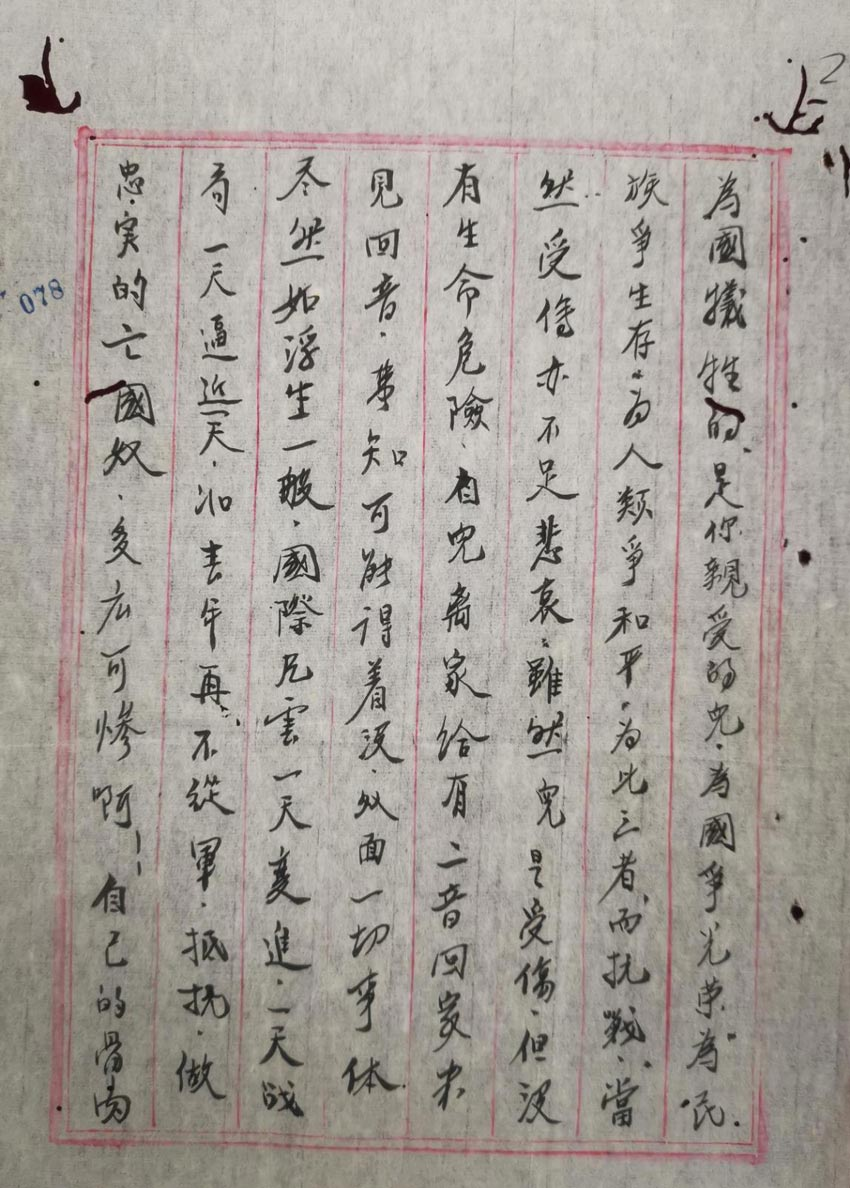 2
078
為國犧牲的、是你親爱的兒、為國爭光荣為民
族爭生存、为人類爭和平、为此三者、而抗戰、當
然受傷亦不足悲哀、雖然兒是受傷、但没
有生命危險、自兒离家给有二音回家未
見回音、苐知可能得着没、奴面一切事体
尽然如浮生一般、國際風雲一天变進、一天战
一天逼近一天、如青年再不從軍、抵抗、做
忠实的亡國奴、多広可惨啊！自己的骨肉